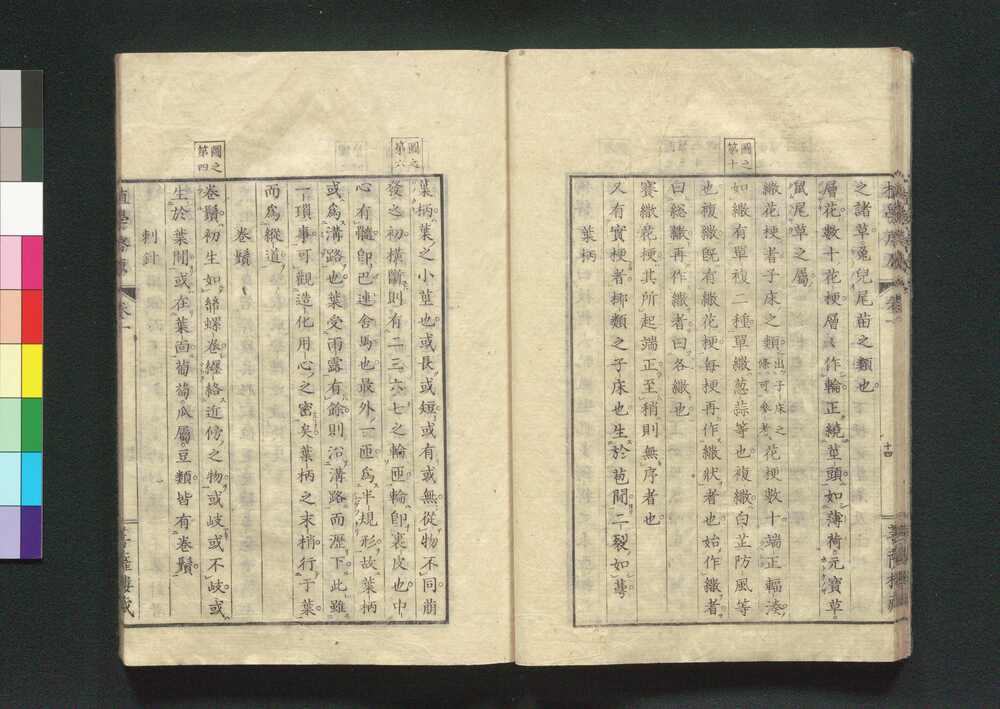 之諸草兔兒尾苗之類也
層花數十花梗層々作輪正繞莖頭如薄荷元寶草
鼠尾草之屬
繖花梗者子床之類出子床之條可參考花梗數十端正輻湊
圖之第十
如繖有單複二種單繖蔥蒜等也複繖白芷防風等
也複繖既有繖花梗每梗再作繖狀者也始作繖者
曰總繖再作繖者曰各繖也
賽繖花梗其所起端正至稍則無序者也
又有實梗者挪類之子床也生於苞間二裂如萼
葉柄
十四
葉柄葉之小莖也或長或短或有或無從物不同萠
圖之第六
發之初橫斷則有二三六七之輪匝輪卽裹皮也中
心有髓卽巴連舍馬也最外一匝爲半規形故葉柄
或爲溝路也葉受雨露有餘則沿溝路而瀝下此雖
一瑣事可觀造化用心之密矣葉柄之末梢行于葉
而爲縱道
卷鬚
圖之第四
卷鬚初生如螺卷纏絡近傍之物或岐或不岐或
生於葉間或在葉面葡萄瓜屬豆類皆有卷鬚
刺針
卷一